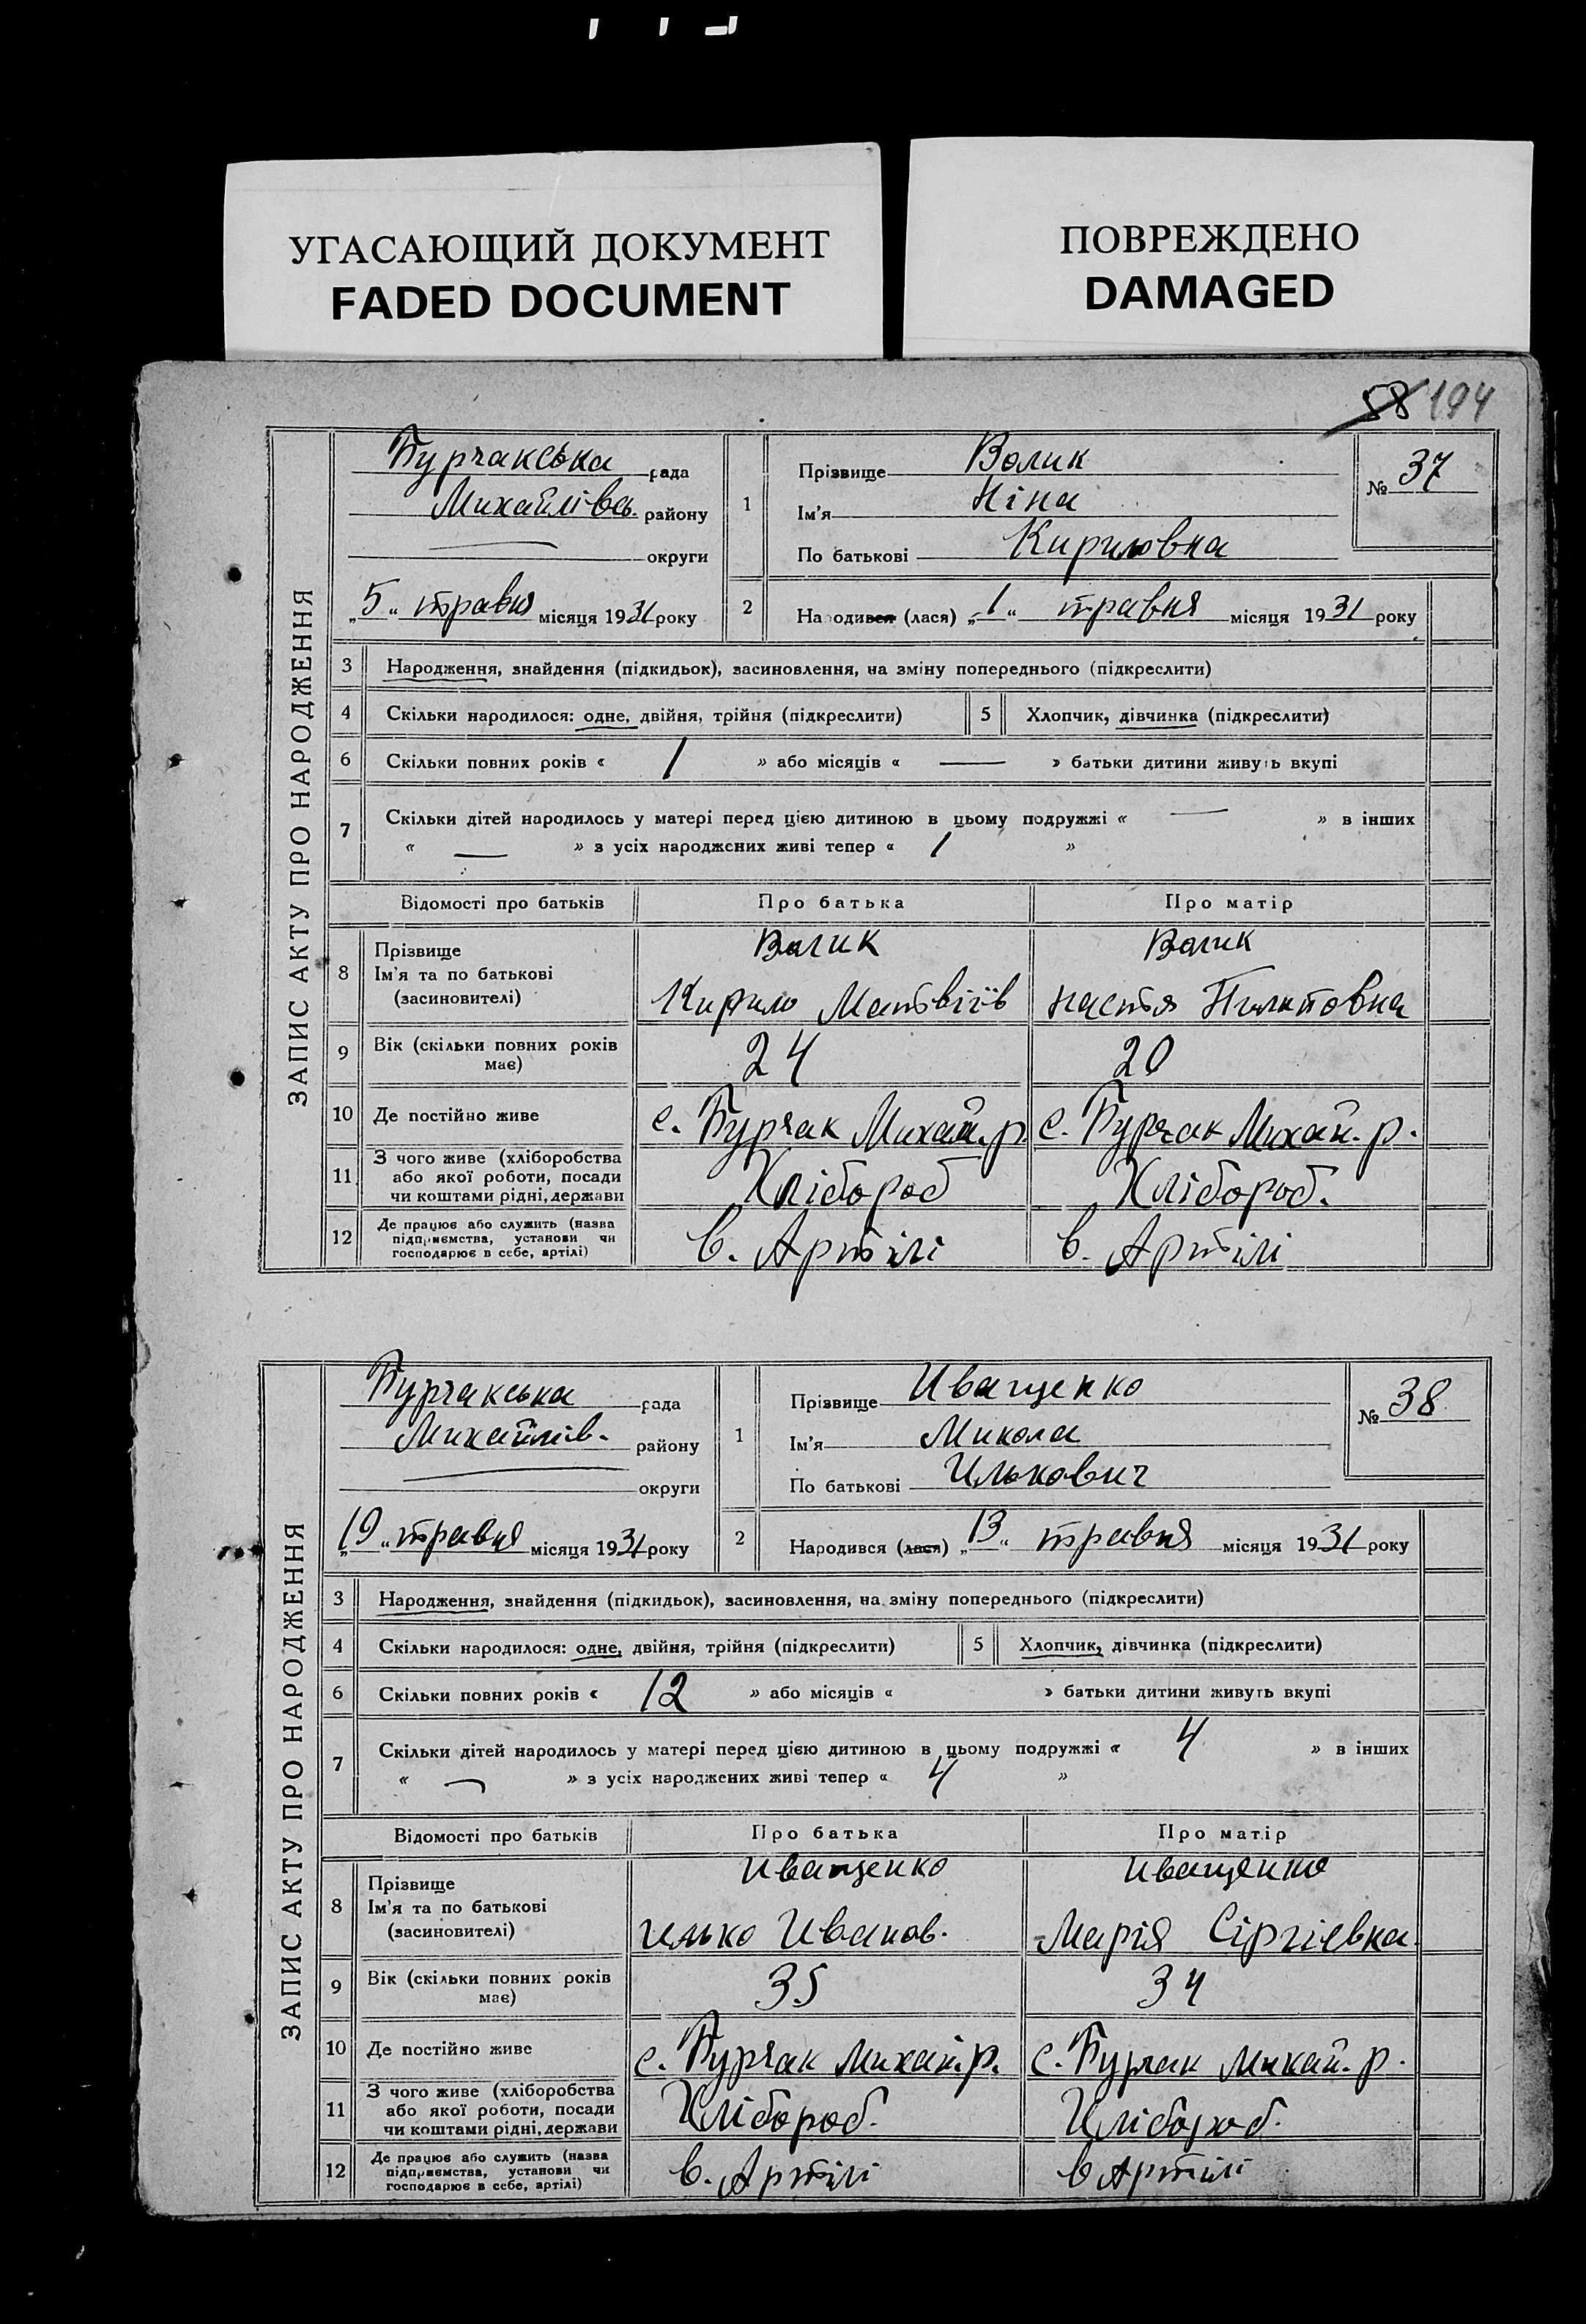 УГАСАЮЩИЙ ДОКУМЕНТ
FADED DOCUMENT
ПОВРЕЖДЕНО
DAMAGED
58 194
ЗАПИС АКТУ ПРО НАРОДЖЕННЯ
Бурчакська рада
Михайлівсь. району
округи
„5“ травня місяця 1931 року
1
Прізвище Волик
Ім'я Ніна
По батькові Кириловна
№ 37
2 Народився (лася) „1“ травня місяця 1931 року
3 Народження, знайдення (підкидьок), засиновлення, на зміну попереднього (підкреслити)
4 Скільки народилося: одне, двійня, трійня (підкреслити) 5 Хлопчик, дівчинка (підкреслити)
6 Скільки повних років « 1 » або місяців « — » батьки дитини живуть вкупі
7 Скільки дітей народилось у матері перед цією дитиною в цьому подружжі « — » в інших
« — » з усіх народжених живі тепер « 1 »
Відомості про батьків Про батька Про матір
8 Прізвище Ім'я та по батькові (засиновителі)
Волик Волик
Кирило Матвіїв Настя Пилиповна
9 Вік (скільки повних років має) 24 20
10 Де постійно живе с. Бурчак Михай. р с. Бурчак Михай. р.
11 З чого живе (хліборобства або якої роботи, посади чи коштами рідні, держави Хлібороб Хлібороб.
12 Де працює або служить (назва підприємства, установи чи господарює в себе, артілі) в. Артілі в. Артілі
ЗАПИС АКТУ ПРО НАРОДЖЕННЯ
Бурчакська рада
Михайлів. району
округи
„19“ травня місяця 1931 року
1
Прізвище Иващенко
Ім'я Микола
По батькові Илькович
№ 38
2 Народився (лася) „13“ травня місяця 1931 року
3 Народження, знайдення (підкидьок), засиновлення, на зміну попереднього (підкреслити)
4 Скільки народилося: одне, двійня, трійня (підкреслити) 5 Хлопчик, дівчинка (підкреслити)
6 Скільки повних років « 12 » або місяців « » батьки дитини живуть вкупі
7 Скільки дітей народилось у матері перед цією дитиною в цьому подружжі « 4 » в інших
« — » з усіх народжених живі тепер « 4 »
Відомості про батьків Про батька Про матір
8 Прізвище Ім'я та по батькові (засиновителі)
Иващенко Иващенко
Илько Иванов. Марія Сіргіевна.
9 Вік (скільки повних років має) 35 34
10 Де постійно живе с. Бурчак Михай. р. с. Бурчак Михай. р.
11 З чого живе (хліборобства або якої роботи, посади чи коштами рідні, держави Хлібороб. Хлібороб.
12 Де працює або служить (назва підприємства, установи чи господарює в себе, артілі) в. Артілі в Артілі